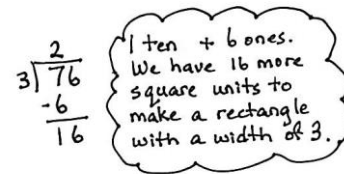 2
3)76
-6
16
1 ten + 6 ones.
We have 16 more
square units to
make a rectangle
with a width of 3.